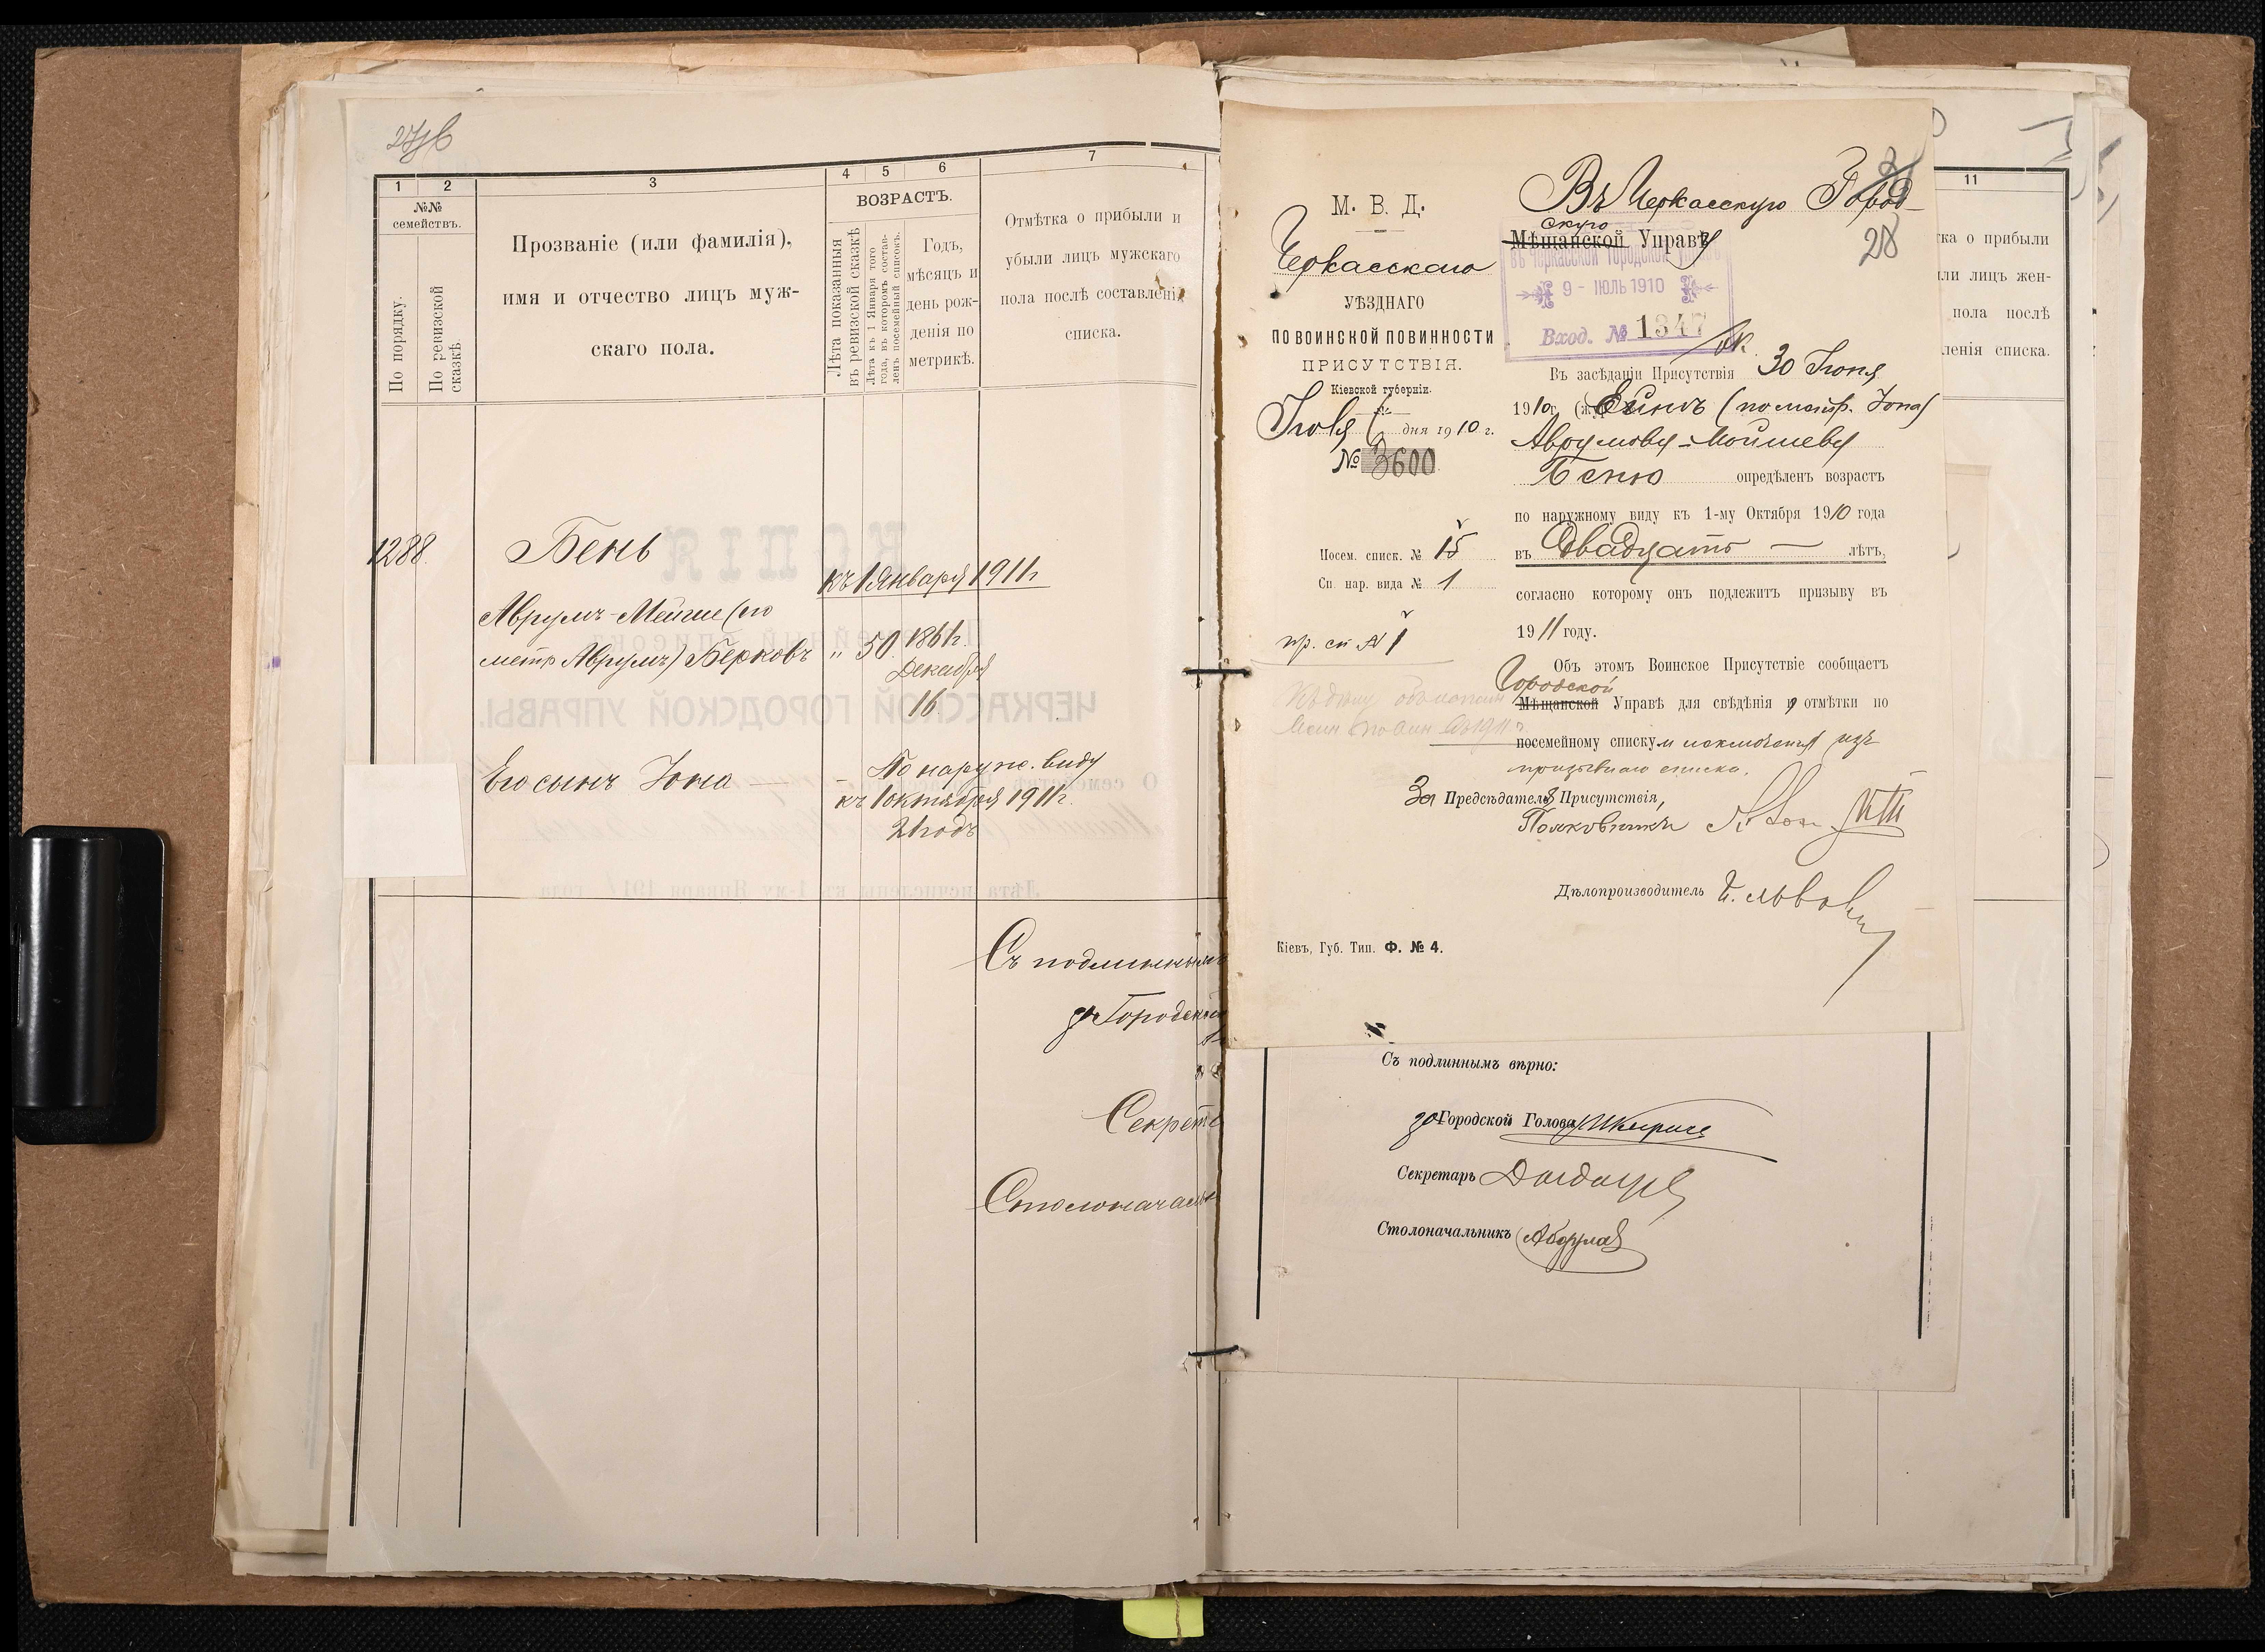 1
2
3
4
5
6
7
№№
семействъ.
ВОЗРАСТЪ.
По порядку.
По ревизской
сказкѣ.
Прозваніе (или фамилія),
имя и отчество лицъ муж-
скаго пола.
Лѣта показанныя
въ ревизской сказкѣ
Лѣта къ 1 Января того
года, въ которомъ состав-
ленъ посемейный списокъ.
Годъ,
мѣсяцъ и
день рож-
денія по
метрикѣ.
Отмѣтка о прибыли и
убыли лицъ мужскаго
пола послѣ составленія
списка.
1288.
Бень
къ 1 Января 1911 г
Аврумъ-Мойше (по
метр Аврумъ) Берковъ
" 50 1861 г.
Декабря
16
Его сынъ Іона —
По наружн. виду
къ 1 октября 1911 г.
21 годъ
Съ подлиннымъ
за Городской
Секрета
Столоначаль
М. В. Д.
Черкасскаго
УѢЗДНАГО
ПО ВОИНСКОЙ ПОВИННОСТИ
ПРИСУТСТВІЯ.
Кіевской губерніи.
Іюля 6 дня 1910 г.
№ 3600
Посем. списк. № 15
Сп. нар. вида № 1
пр. сп № 1
Въ Черкасскую Город-
скую
Мѣщанской Управу
28
Въ Черкасской Городской Управѣ
9 - ІЮЛЬ 1910
Вход. № 1347
Въ засѣданіи Присутствія 30 Іюня
1910 г. (жур Еина (по метр. Іона)
Аврумову-Мойшеву
Беню опредѣленъ возрастъ
по наружному виду къ 1-му Октября 1910 года
въ Двадцать — лѣтъ,
согласно которому онъ подлежитъ призыву въ
1911 году.
Объ этомъ Воинское Присутствіе сообщаетъ
Городской
Мѣщанской Управѣ для свѣдѣнія и отмѣтки по
посемейному списку и исключенія изъ
призывнаго списка.
За Предсѣдателя Присутствія,
Полковникъ
Дѣлопроизводитель
Кіевъ, Губ. Тип. Ф. № 4.
Съ подлиннымъ вѣрно:
за Городской Голова
Секретарь
Столоначальникъ
11
тка о прибыли
ли лицъ жен-
пола послѣ
ленія списка.